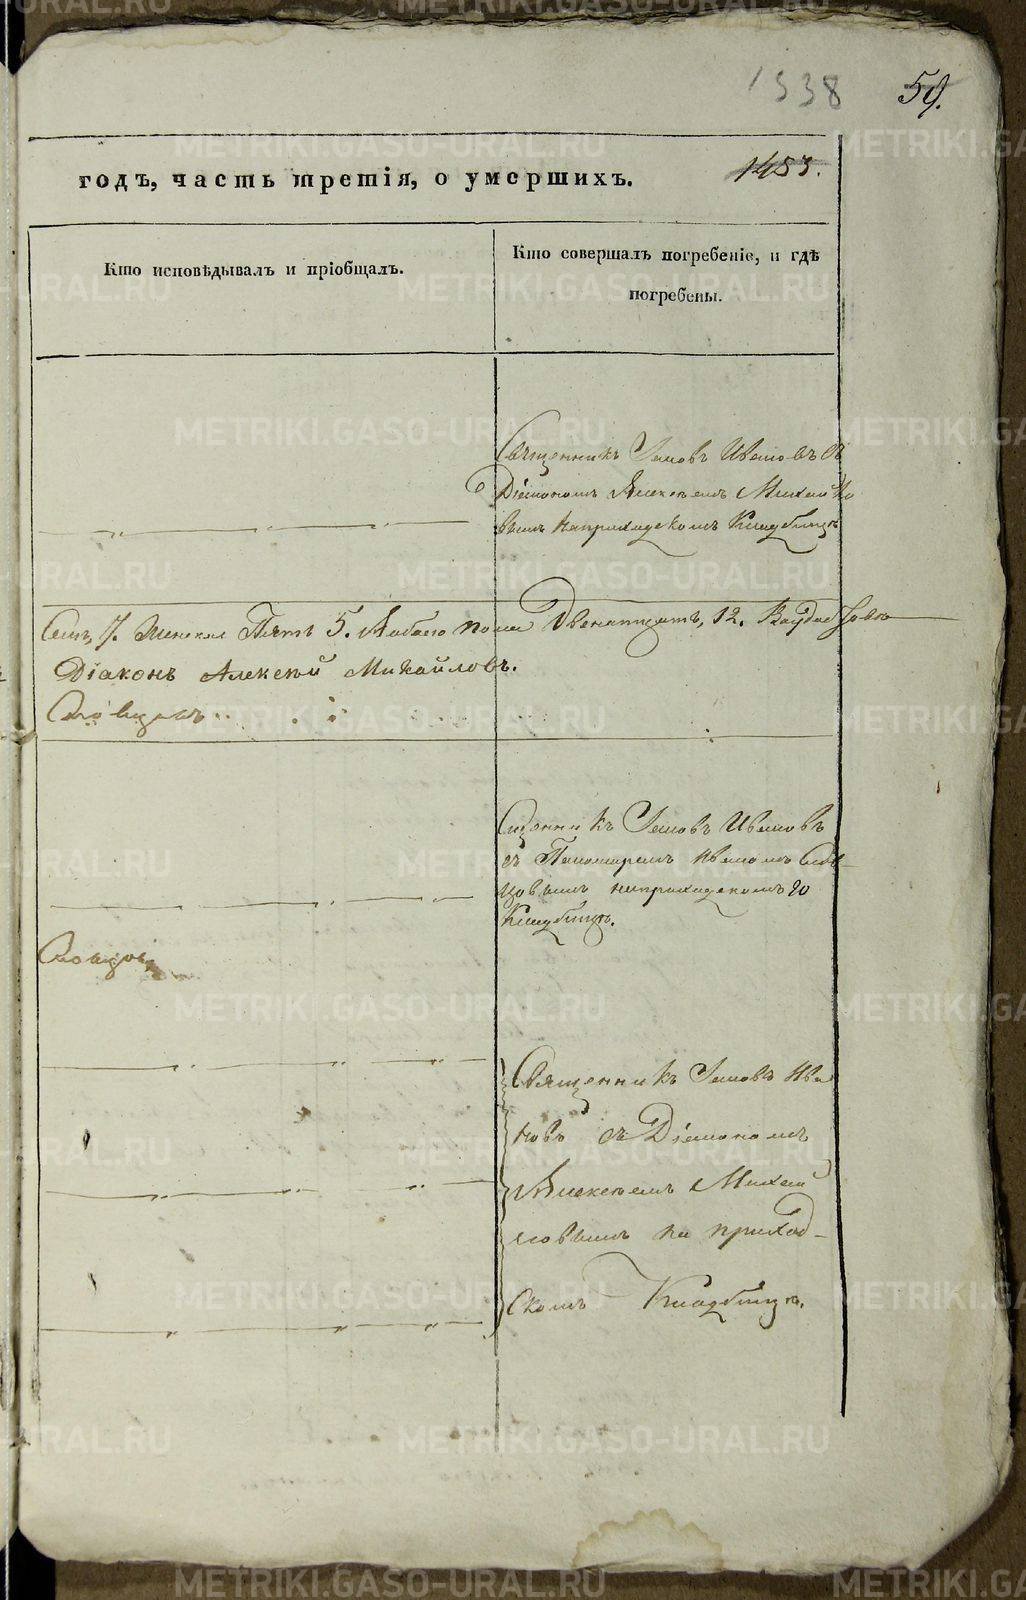 1338
59.
годъ, часть третія, о умершихъ.
1483.
Кто исповѣдывалъ и пріобщалъ.
Кто совершалъ погребеніе, и гдѣ
погребены.
Священникъ Іаковъ Ивановъ съ
Діакономъ Алексѣемъ Михайло
вымъ на приходскомъ Кладбищѣ
7. Женска Пять 5. Обоего пола Двенатцать, 12.
Діаконъ Алексѣй Михайловъ.
Сщенникъ Іаковъ Ивановъ
съ Пономаремъ
на приходскомъ
Кладбищѣ.
Священникъ Іаковъ Ива
новъ съ Діакономъ
Алексѣемъ Михай
ловымъ на приход-
скомъ Кладбищѣ.
METRIKI.GASO-URAL.RU